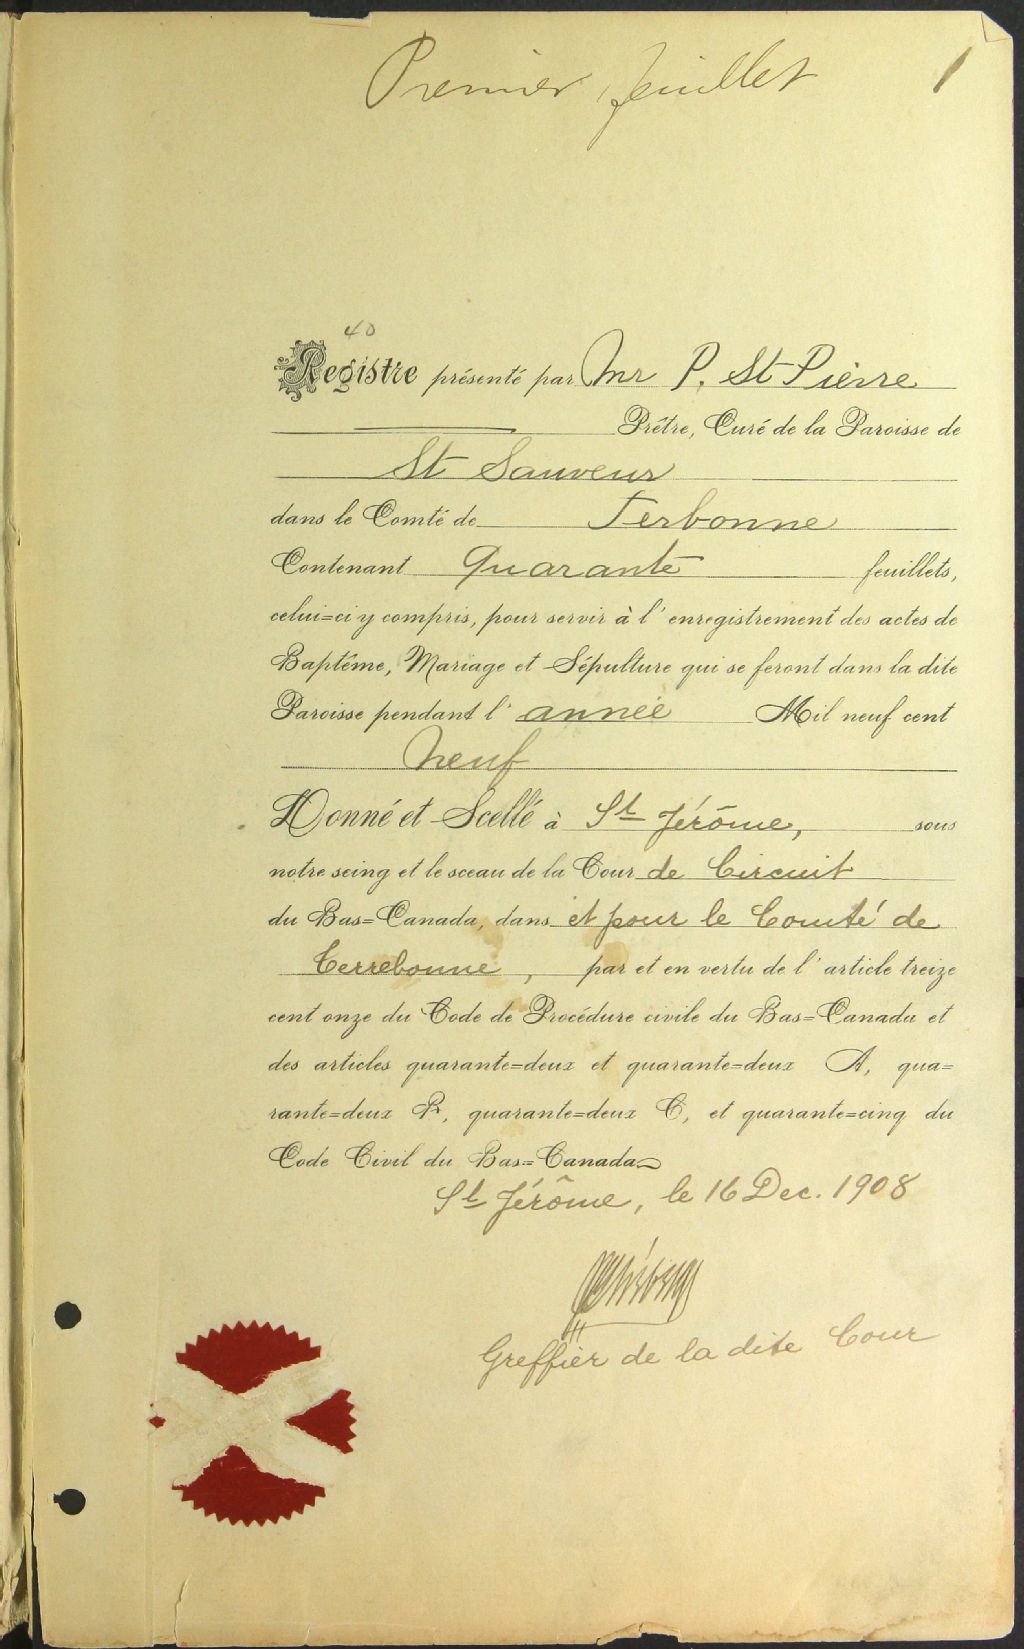 Premier feuillet 1
40
Registre présenté par Mr P. St Pierre
Prêtre, Curé de la Paroisse de
St Sauveur
dans le Comté de Terbonne
Contenant Quarante feuillets,
celui=ci y compris, pour servir à l'enregistrement des actes de
Baptême, Mariage et Sépulture qui se feront dans la dite
Paroisse pendant l'année Mil neuf cent
neuf
Donné et Scellé à St Jérôme, sous
notre seing et le sceau de la Cour de Circuit
du Bas=Canada, dans et pour le Comté de
Terrebonne, par et en vertu de l'article treize
cent onze du Code de Procédure civile du Bas=Canada et
des articles quarante=deux et quarante=deux A, qua=
rante=deux B, quarante=deux C, et quarante=cinq du
Code Civil du Bas=Canada
St Jérôme, le 16 Dec. 1908
Greffier de la dite Cour